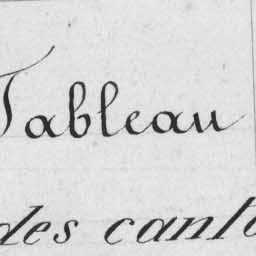 Tableau
des canto